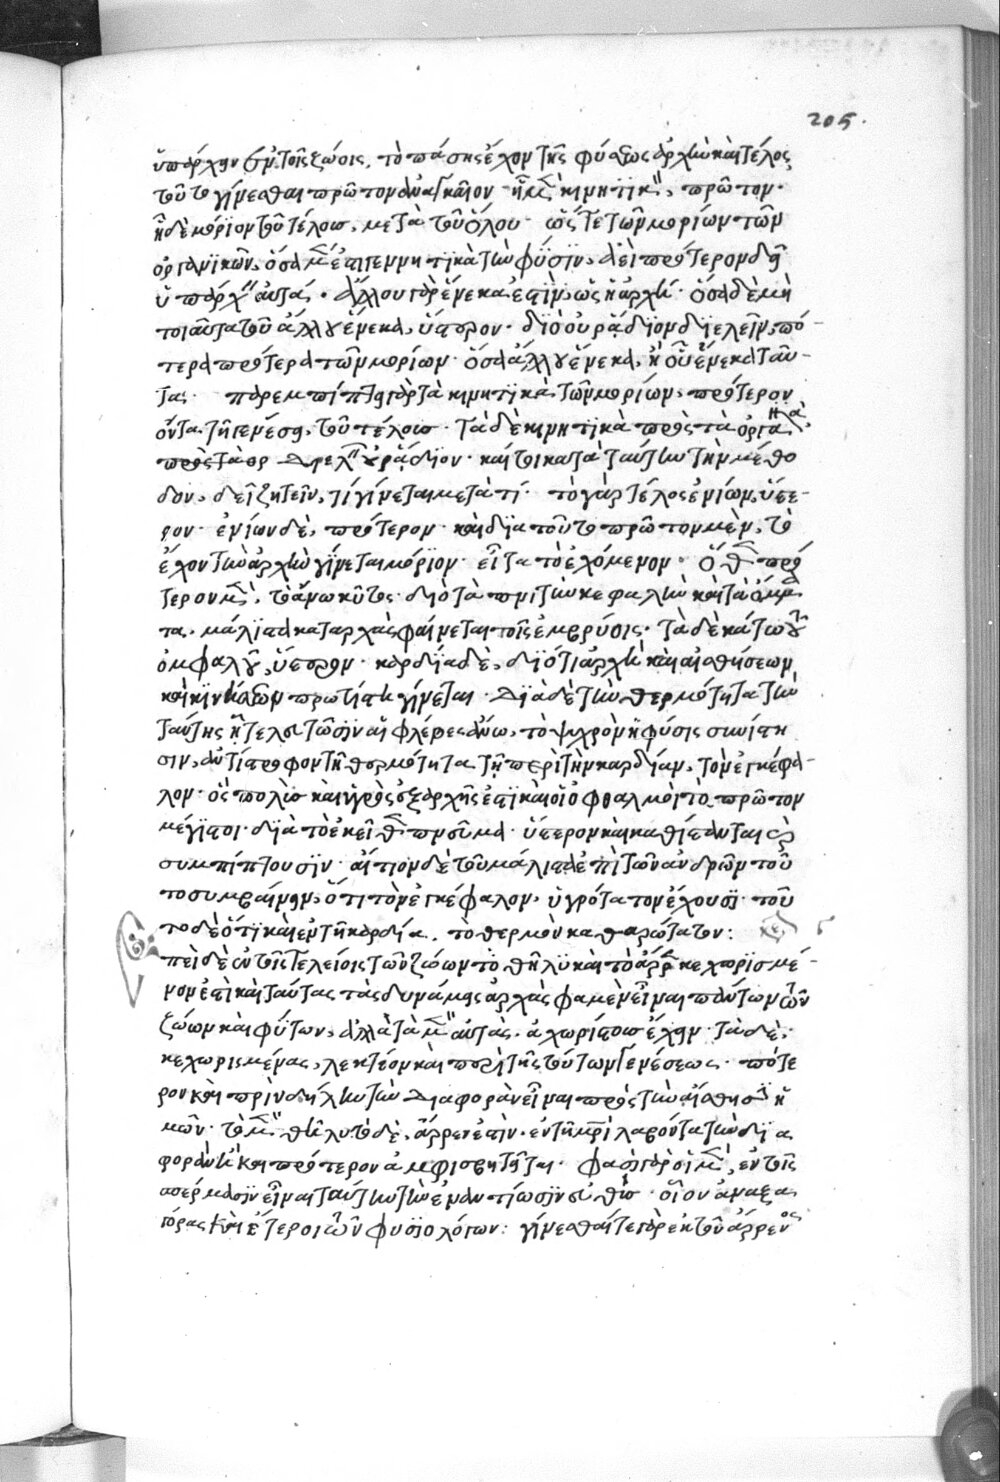 205.
ὑπάρχειν ἐν τοῖς ζώοις, τὸ πάσης ἔχον τῆς φύσεως ἀρχὴν καὶ τέλος
τοῦτο γίνεσθαι πρῶτον ἀναγκαῖον ἧ μὲν κινητικὸν, πρῶτον·
ᾗ δὲ μόριον τοῦ τέλους, μετὰ τοῦ ὅλου· ὥστε τῶν μορίων τῶν
ὀργανικῶν, ὅσα μέν ἐστι γεννητικὰ τὴν φύσιν, ἀεὶ πρότερον δεῖ
ὑπάρχειν αὐτά· ἄλλου γὰρ ἕνεκά ἐστιν, ὡς ἡ ἀρχή· ὅσα δὲ μὴ
τοιαῦτα τοῦ ἄλλου ἕνεκα, ὕστερον· διὸ οὐ ῥάδιον διελεῖν, πό-
τερα πρότερα τῶν μορίων· ὅσα ἄλλου ἕνεκα, ἢ οὗ ἕνεκα ταῦ-
τα· παρεμπίπτει γὰρ τὰ κινητικὰ τῶν μορίων, πρότερον
ὄντα τῇ γενέσει, τοῦ τέλους· τὰ δὲ κινητικὰ πρὸς τὰ ὀργανικὰ
πρὸς τὰ ὀρ διελεῖν οὐ ῥάδιον· καίτοι κατὰ ταύτην τὴν μέθο
δον, δεῖ ζητεῖν, τί γίνεται μετὰ τί· τὸ γὰρ τέλος ἐνίων, ὕστε-
ρον· ἐνίων δὲ, πρότερον· καὶ διὰ τοῦτο πρῶτον μὲν, τὸ
ἔχον τὴν ἀρχὴν γίνεται μόριον· εἶτα τὸ ἐχόμενον· πρό
τερον μὲν, τὸ ἄνω κύτος· διὸ τὰ περὶ τὴν κεφαλὴν καὶ τὰ ὄμμα
τα, μάλιστα κατ' ἀρχὰς φαίνεται τοῖς ἐμβρύοις· τὰ δὲ κάτω τοῦ
ὀμφαλοῦ, ὕστερον· καρδία δὲ, διότι ἀρχὴ καὶ αἰσθήσεων
καὶ κινήσεων πρώτιστα γίνεται· διὰ δὲ τὴν θερμότητα τὴν
ταύτης ᾗ τελευτῶσιν αἱ φλέβες ἄνω, τὸ ψυχρὸν ἡ φύσις συνίστη
σιν, ἀντίστροφον τῇ θερμότητι τῇ περὶ τὴν καρδίαν, τὸν ἐγκέφα-
λον· ὃς πολὺς καὶ ὑγρὸς ἐξ ἀρχῆς ἐστι καὶ οἱ ὀφθαλμοὶ τὸ πρῶτον
μέγιστοι· διὰ τὸ ἐκεῖθεν πνεῦμα· ὕστερον καὶ καθίστανται καὶ
συμπίπτουσιν· αἴτιον δὲ τοῦ μάλιστα ἐπὶ τῶν ἀνδρῶν τοῦ
το συμβαίνειν, ὅτι τὸν ἐγκέφαλον, ὑγρότατον ἔχουσι· τοῦ
το δὲ ὅτι καὶ ἐν τῇ καρδία, τὸ θερμὸν καθαρώτατον:
πεὶ δὲ ἐν τοῖς τελείοις τῶν ζώων τὸ θῆλυ καὶ τὸ ἄρρεν κεχωρισμέ-
νον ἐστὶ καὶ ταύτας τὰς δυνάμεις ἀρχὰς φαμὲν εἶναι πάντων τῶν
ζώων καὶ φυτῶν, ἀλλὰ τὰ μὲν αὐτὰς, ἀχωρίστους ἔχειν· τὰ δὲ,
κεχωρισμένας, λεκτέον καὶ περὶ τῆς τούτων γενέσεως· πότε
ρον καὶ πρὶν δήλην τὴν διαφορὰν εἶναι πρὸς τὴν αἴσθησιν ἡ
μῶν· τὸ μὲν θῆλυ τὸ δὲ, ἄρρεν ἐστὶν· ἐν τῇ μητρὶ λαβόντα τὴν δια
φορὰν ἢ καὶ πρότερον ἀμφισβητεῖται· φασὶ γὰρ οἱ μὲν, ἐν τοῖς
σπέρμασιν εἶναι ταύτην τὴν ἐναντίωσιν εὐθύς· οἷον ἀναξα
γόρας καὶ ἕτεροι τῶν φυσιολόγων: γίνεσθαί τε γὰρ ἐκ τοῦ ἄρρενος